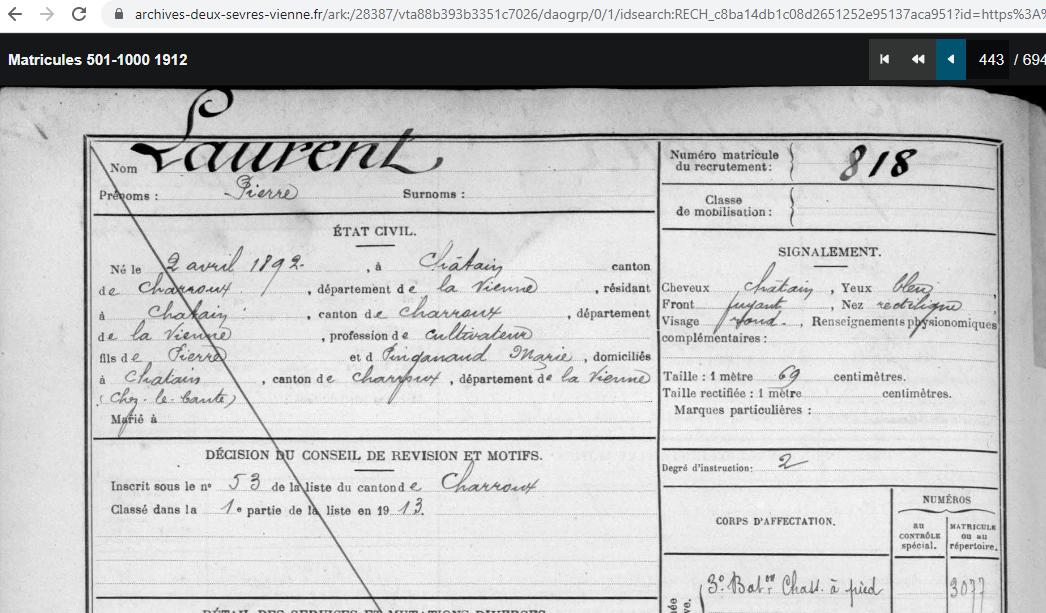 archives-deux-sevres-vienne.fr/ark:/28387/vta88b393b3351c7026/daogrp/0/1/idsearch:RECH_c8ba14db1c08d2651252e95137aca951?id=https%3A%
Matricules 501-1000 1912
443 / 694
Nom Laurent
Prénoms : Pierre Surnoms :
Numéro matricule
du recrutement : 818
Classe
de mobilisation :
ÉTAT CIVIL.
Né le 2 avril 1892. , à Châtain canton
de Charroux. , département de la Vienne , résidant
à Chatain , canton de Charroux , département
de la Vienne , profession de Cultivateur
fils de Pierre et d Pinganaud Marie , domiciliés
à Chatain , canton de Charroux , département de la Vienne
(Chez-le-Caute)
Marié à
SIGNALEMENT.
Cheveux châtain , Yeux bleu ,
Front fuyant Nez rectiligne
Visage rond. , Renseignements physionomiques
complémentaires :
Taille : 1 mètre 69 centimètres.
Taille rectifiée : 1 mètre centimètres.
Marques particulières :
Degré d'instruction : 2
DÉCISION DU CONSEIL DE REVISION ET MOTIFS.
Inscrit sous le nº 53 de la liste du canton de Charroux
Classé dans la 1e partie de la liste en 1913.
CORPS D'AFFECTATION.
NUMÉROS
au
CONTRÔLE
spécial.
MATRICULE
ou au
répertoire.
3º Baton Chass. à pied 3077
DÉTAIL DES SERVICES ET MUTATIONS DIVERSES.